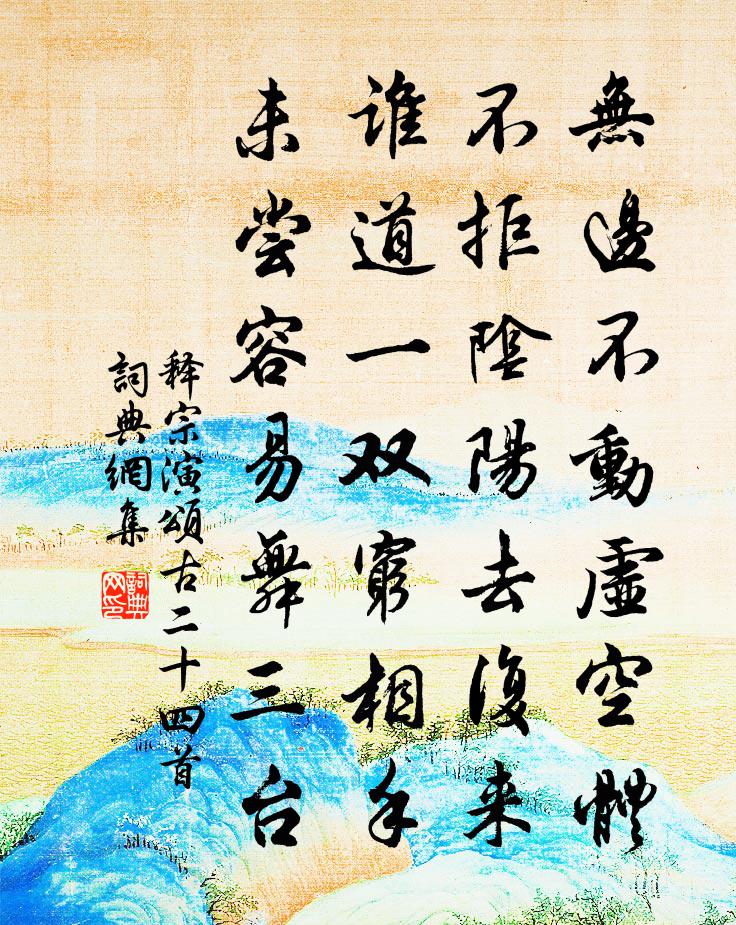 無邊不動虛空體
不拒陰陽去復来
誰道一双窮相手
未尝容易舞三台
释宗演頌古二十四首
詞典網集
詞典网印